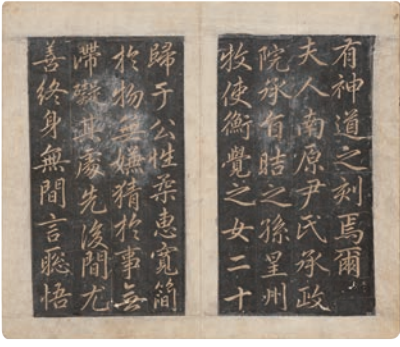 有神道之刻焉爾
夫人南原尹氏承政
院承旨晧之孫星州
牧使衡覺之女二十
歸于公性柔惠寬簡
於物無嫌猜於事無
滯礙其處先後間尤
善終身無間言聡悟